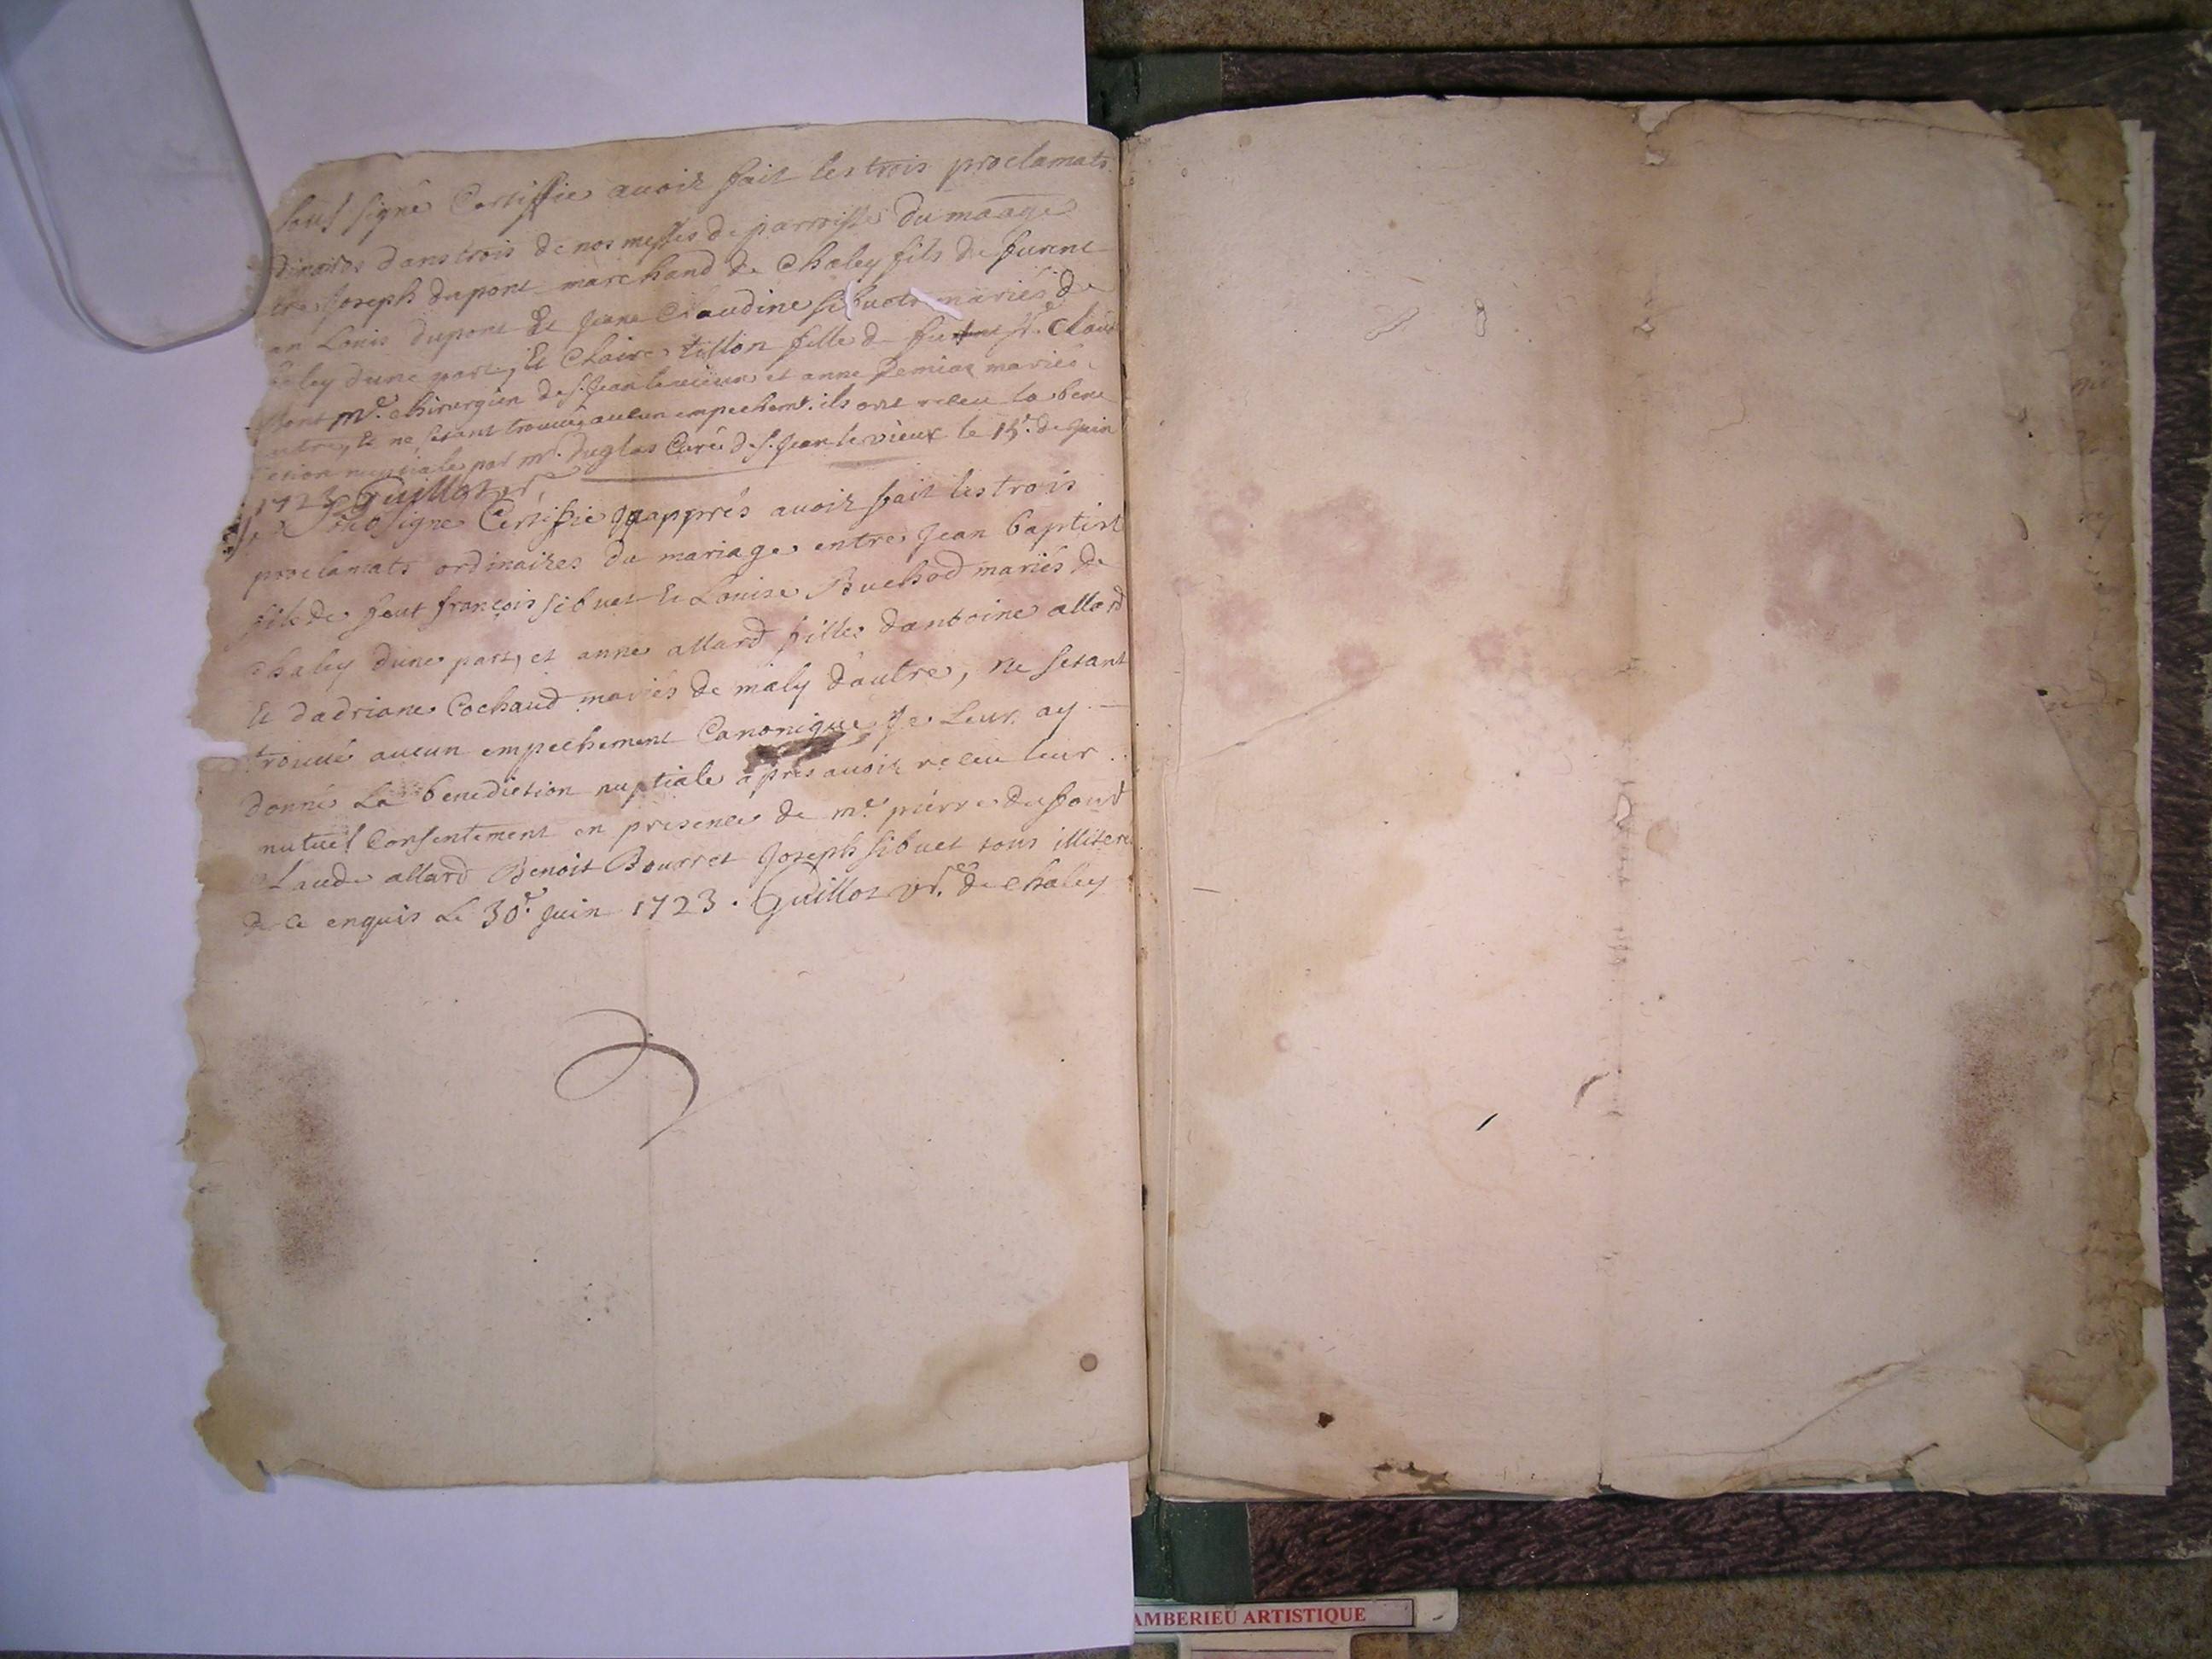 sousigné Certiffie avoir fait les trois proclamats
dinaires dans trois de nos messes de parroisse du maage
tre Joseph dupont marchand de Chaley fils de furent
an Louis dupont Et Jeane Claudine sibuet mariés de
aley dune part, Et Claire tillon fille de fu sr. Claud
mre. chirurgien de s. Jean le vieux et anne Demiaz mariés
autre, Et ne setant trouvé aucun empechemt. ils ont receu la bene
ction nuptiale par mr. Duglas Curé de s. Jean le vieux le 15e. de Juin
1723 Guillot vre
Je Sousigné Certifie quapprés avoir fait les trois
proclamats ordinaires du mariage entre Jean baptist
fils de feut françois sibuet Et Louise Buchod mariés de
Chaley dune part, et anne allard fille dantoine allard
Et dadriane Cochaud mariés de maly dautre, ne setant
trouvé aucun empechement Canonique Je Leur ay
donné La benediction nuptiale apres avoir receu leur
mutuel Consentement en presence de me. pierre dufour
Claude allard Benoit Bourret Joseph sibuet tous illitere
de ce enquis Le 30e. Juin 1723. Guillot vre. de Chaley
AMBERIEU ARTISTIQUE